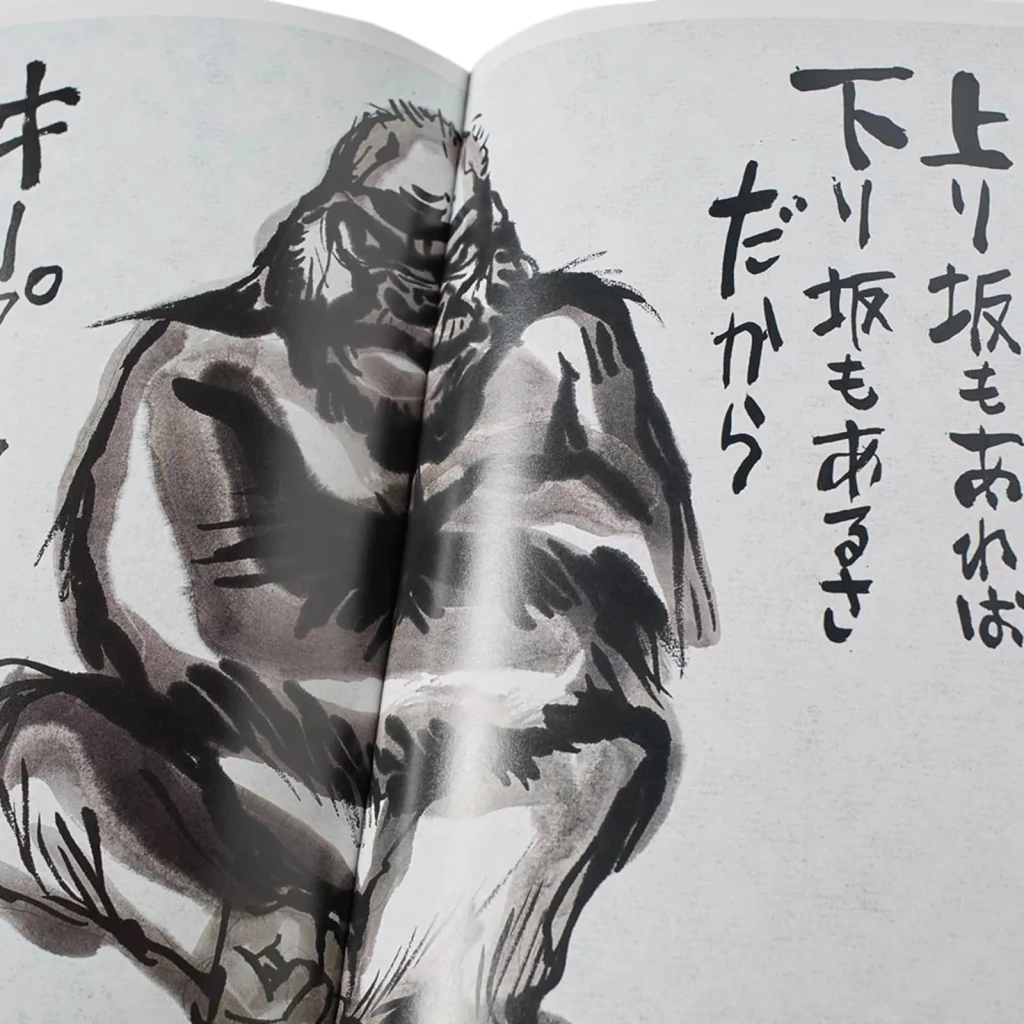 上り坂もあれば
下り坂もあるさ
だから
キープ